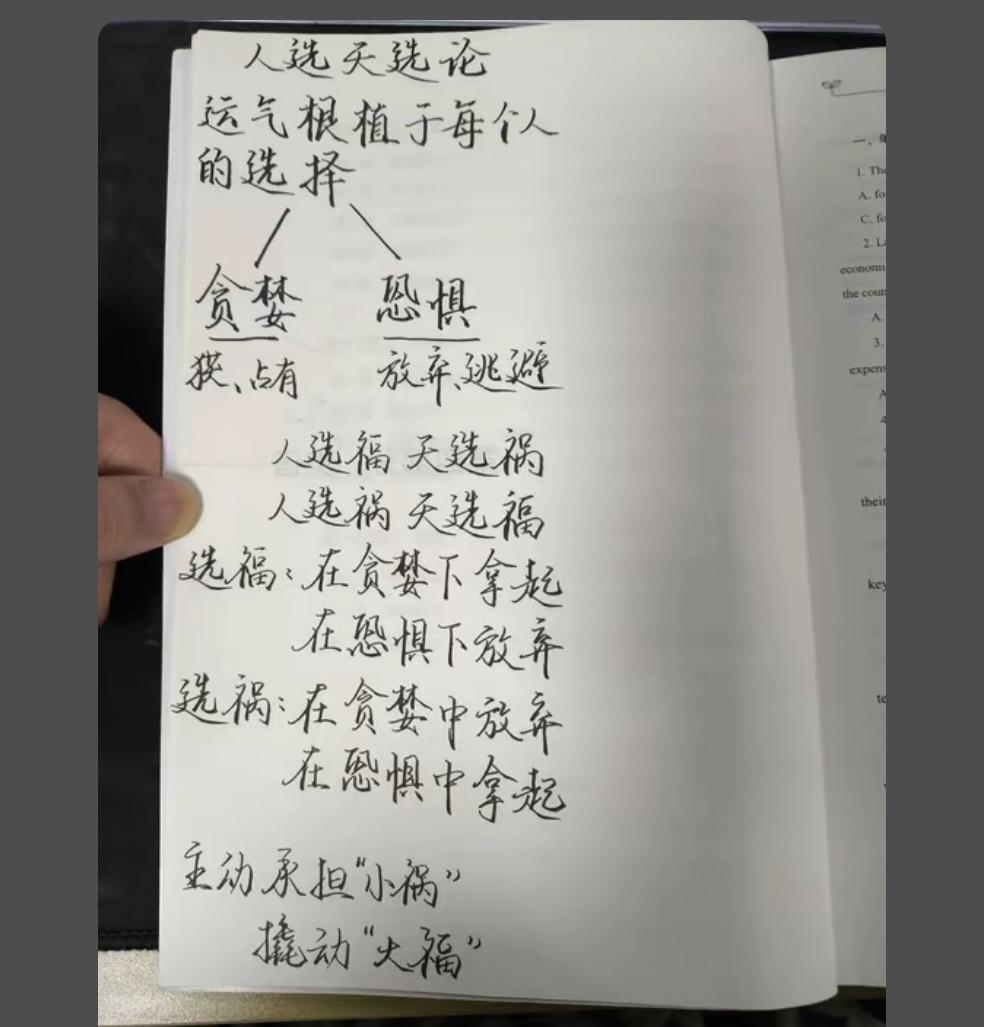 人选天选论
运气根植于每个人
的选择
贪婪 恐惧
获、占有 放弃、逃避
人选福 天选祸
人选祸 天选福
选福：在贪婪下拿起
在恐惧下放弃
选祸：在贪婪中放弃
在恐惧中拿起
主动承担“小祸”
撬动“大福”
一、
1. Th
A. fo
C. fo
2. La
econom
the coun
A.
3.
expens
A
4
their
key
te